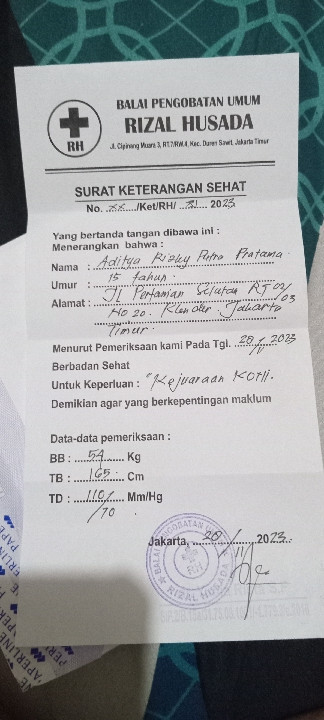 BALAI PENGOBATAN UMUM
RIZAL HUSADA
RH
Jl. Cipinang Muara 3, RT.7/RW.4, Kec. Duren Sawit, Jakarta Timur
SURAT KETERANGAN SEHAT
No. xx /Ket/RH/ XI 2023
Yang bertanda tangan dibawa ini :
Menerangkan bahwa :
Nama : Aditya Rizky Putra Pratama
Umur : 15 tahun.
Alamat : Jl Pertanian Selatan RT 02/03
No 20. Klender Jakarta
Timur.
Menurut Pemeriksaan kami Pada Tgl. 20/11 2023
Berbadan Sehat
Untuk Keperluan : "Kejuaraan
Demikian agar yang berkepentingan maklum
Data-data pemeriksaan :
BB : 54 Kg
TB : 165 Cm
TD : 110/70 Mm/Hg
Jakarta, 20/11 2023
BALAI PENGOBATAN
RH
RIZAL HUSADA